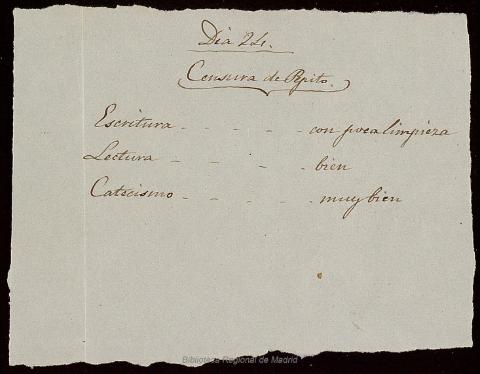 Dia 24.
Censura de Pepito.
Escritura - - - - con poca limpieza
Lectura - - - - bien
Catecismo - - - - muy bien
Biblioteca Regional de Madrid